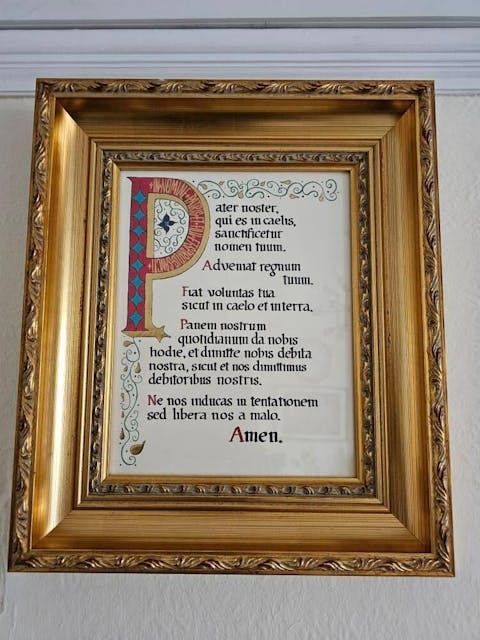 Pater noster,
qui es in caelis,
sanctificetur
nomen tuum.
Adveniat regnum
tuum.
Fiat voluntas tua
sicut in caelo et in terra.
Panem nostrum
quotidianum da nobis
hodie, et dimitte nobis debita
nostra, sicut et nos dimittimus
debitoribus nostris.
Ne nos inducas in tentationem
sed libera nos a malo.
Amen.